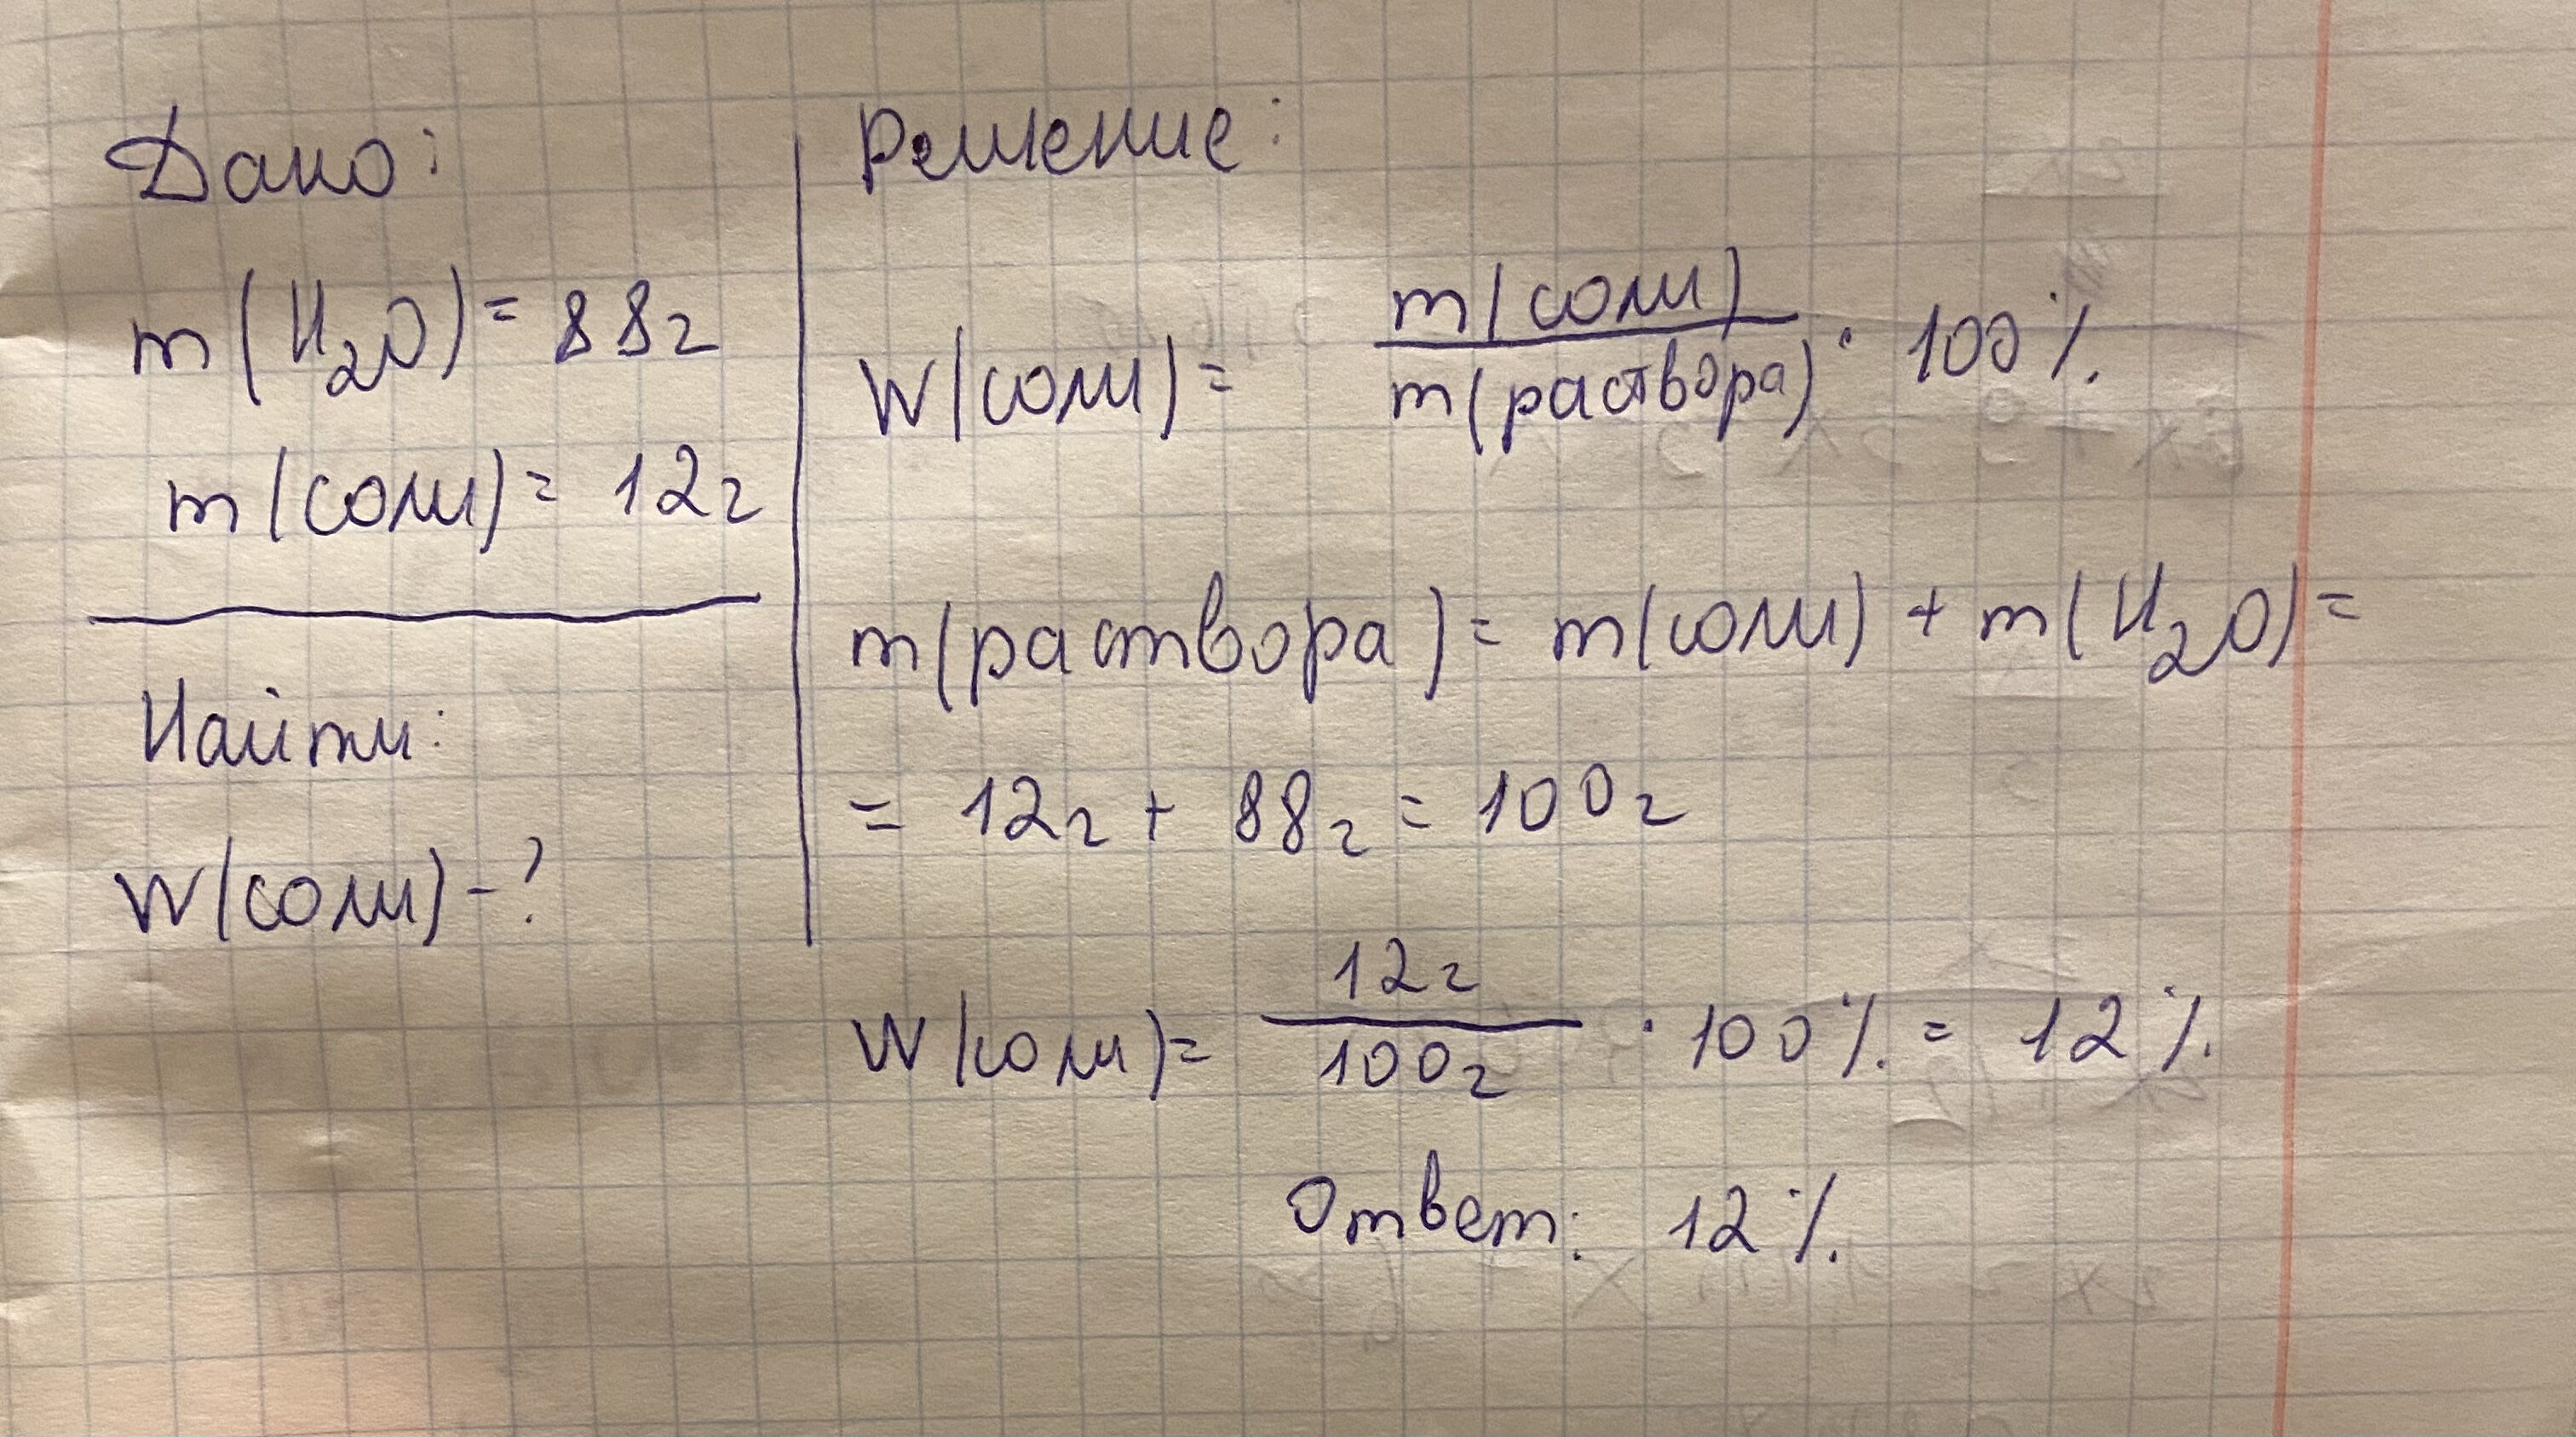 Дано:
m(H₂O) = 88г
m(соли) = 12г
Найти:
W(соли) - ?
Решение:
W(соли) = m(соли) / m(раствора) · 100%
m(раствора) = m(соли) + m(H₂O) =
= 12г + 88г = 100г
W(соли) = 12г / 100г · 100% = 12%
Ответ: 12%